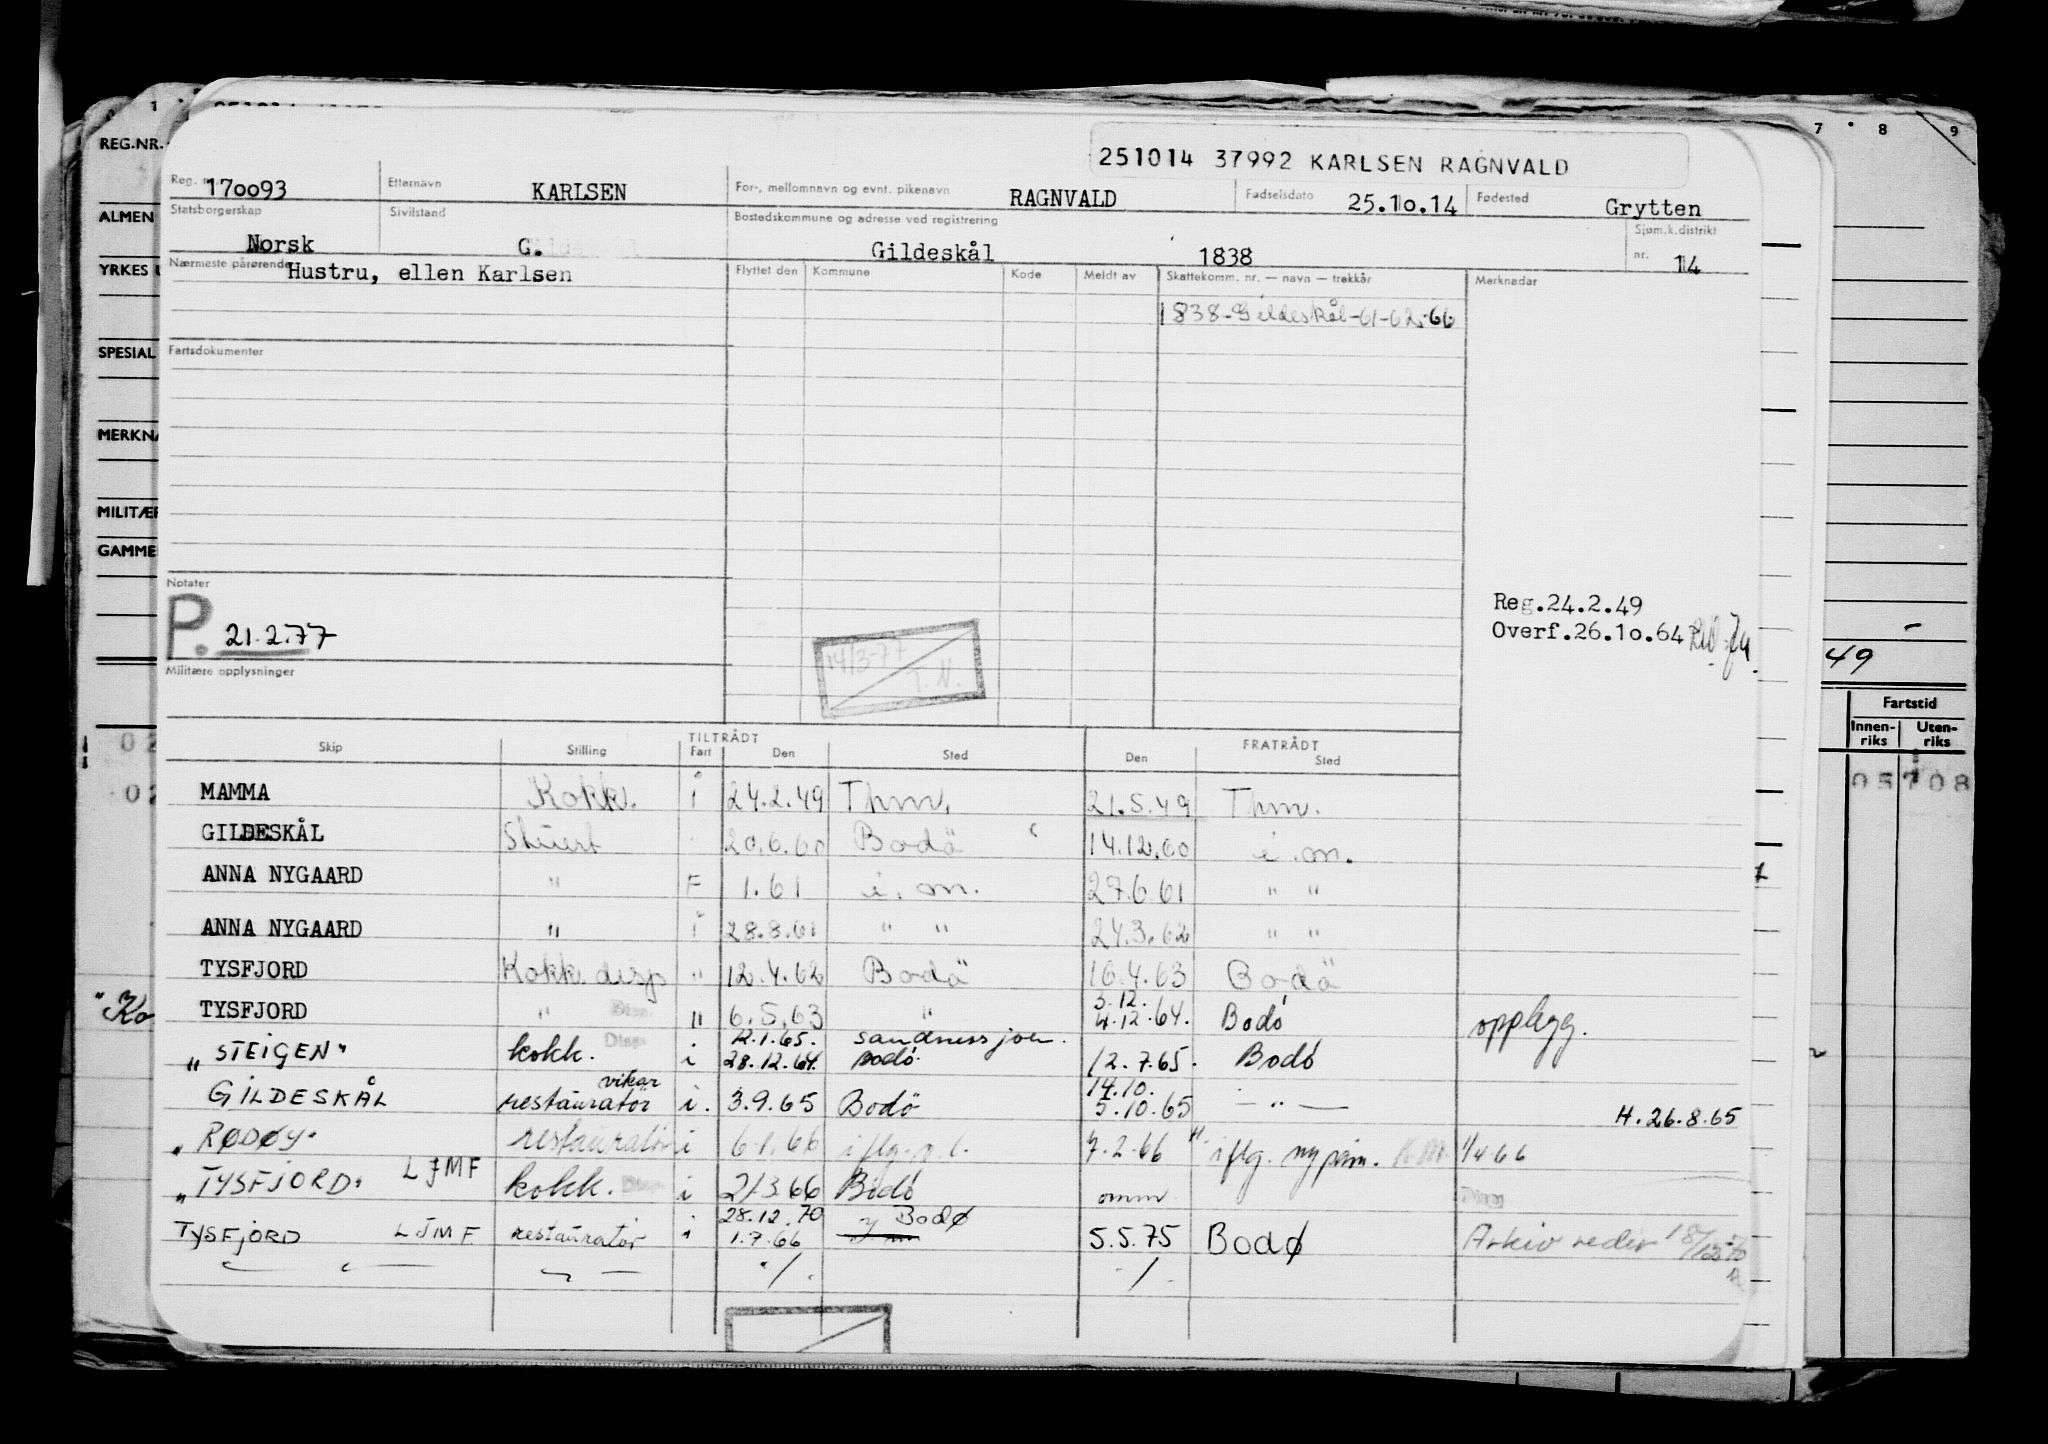 7 8 9
REG.NR.
251014 37992 KARLSEN RAGNVALD
Reg. nr. 170093 Etternavn KARLSEN For-, mellomnavn og evnt. pikenavn RAGNVALD Fødselsdato 25.10.14 Fødested Grytten
ALMEN
Statsborgerskap Norsk Sivilstand G. Bostedskommune og adresse ved registrering Gildeskål 1838 Sjøm.k.distrikt nr. 14
YRKES
Nærmeste pårørende Hustru, ellen Karlsen Flyttet den Kommune Kode Meldt av Skattekomm. nr. — navn — trekkår Merknader
1838-Gildeskål-61-62-66
SPESIAL
Fartsdokumenter
MERKNA
MILITÆR
GAMME
Notater
P. 21.2.77
Reg.24.2.49
Overf.26.10.64
14/3-77
T. N.
49
Militære opplysninger
Fartstid
Innen-riks Uten-riks
TILTRÅDT FRATRÅDT
Skip Stilling Fart Den Sted Den Sted
05708
MAMMA Kokk. i 24.2.49 Thm. 21.5.49 Thm.
GILDESKÅL Stuert 20.6.60 Bodö 14.12.60 i. om.
ANNA NYGAARD " F 1.61 i. om. 27.6.61 " "
ANNA NYGAARD " i 28.8.61 " " 24.3.62 " "
TYSFJORD Kokk disp " 12.4.62 Bodö 16.4.63 Bodö
3.12.
TYSFJORD " Disp. " 6.5.63 " 4.12.64. Bodó opplegg.
"Ko
12.1.65. Sandnessjøen.
"STEIGEN" kokk. Disp i 28.12.64. Bodó. 12.7.65. Bodó
vikar 14.10.
GILDESKÅL restauratör i. 3.9.65 Bodó 5.10.65 — " — H. 26.8.65
"RØDØY" restauratör i 6.1.66 iflg. 7.2.66 iflg. K.M. 1/4-66
"TYSFJORD" LJMF kokk. Disp i 21/3.66 Bodó omm Disp
28.12.70 Bodø
TYSFJORD LJMF restauratör i 1.7.66 5.5.75 Bodø Arkiv reder 18/12-70
— " — — " — ./. ./.